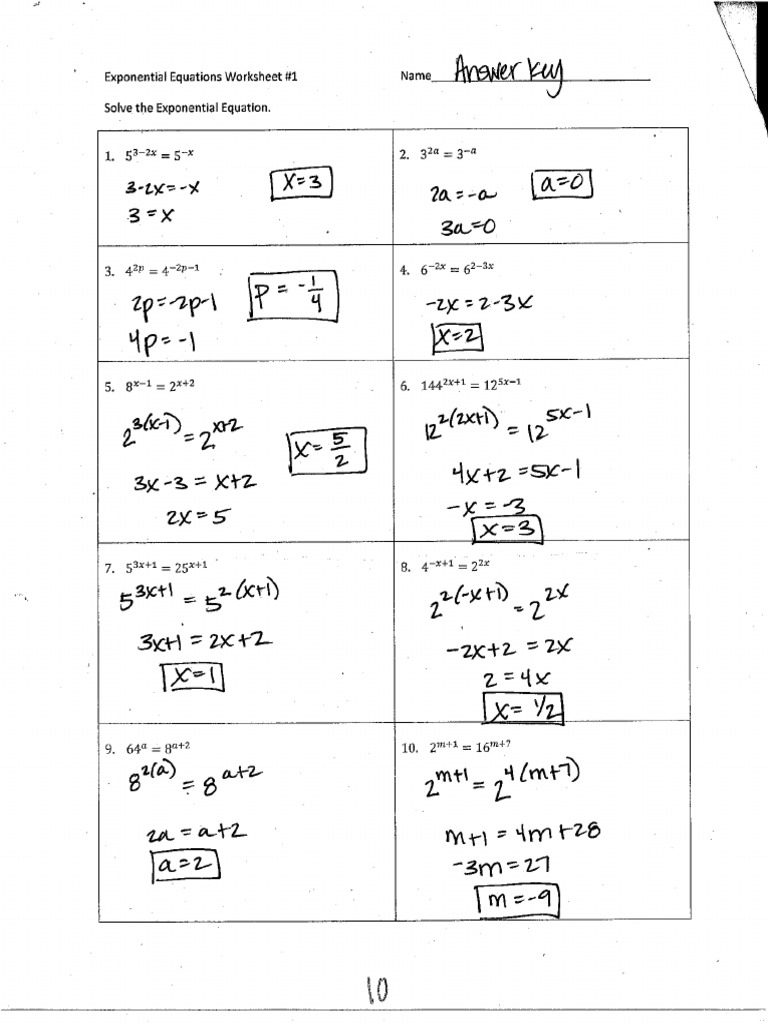 Exponential Equations Worksheet #1 Name Answer Key
Solve the Exponential Equation.
1. 5^{3−2x} = 5^{−x}
3-2x=-x
3=x
x=3
2. 3^{2a} = 3^{−a}
2a=-a
3a=0
a=0
3. 4^{2p} = 4^{−2p−1}
2p=-2p-1
4p=-1
p = -1/4
4. 6^{−2x} = 6^{2−3x}
-2x=2-3x
x=2
5. 8^{x−1} = 2^{x+2}
2^{3(x-1)} = 2^{x+2}
3x-3 = x+2
2x=5
x=5/2
6. 144^{2x+1} = 12^{5x−1}
12^{2(2x+1)} = 12^{5x-1}
4x+2=5x-1
-x=-3
x=3
7. 5^{3x+1} = 25^{x+1}
5^{3x+1} = 5^{2(x+1)}
3x+1=2x+2
x=1
8. 4^{−x+1} = 2^{2x}
2^{2(-x+1)} = 2^{2x}
-2x+2 = 2x
2=4x
x= 1/2
9. 64^{a} = 8^{a+2}
8^{2(a)} = 8^{a+2}
2a=a+2
a=2
10. 2^{m+1} = 16^{m+7}
2^{m+1} = 2^{4(m+7)}
m+1 = 4m+28
-3m=27
m=-9
10